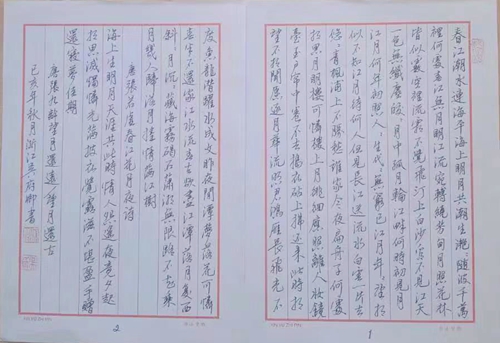 春江潮水連海平海上明月共潮生灩灩隨波千萬
裡何處春江無月明江流宛轉繞芳甸月照花林
皆似霰空裡流霜不覺飛汀上白沙看不見江天
一色無纖塵皎皎空中孤月輪江畔何人初見月
江月何年初照人人生代代無窮已江月年年望相
似不知江月待何人但見長江送流水白雲一片去
悠悠青楓浦上不勝愁誰家今夜扁舟子何處
相思明月樓可憐樓上月徘徊應照離人妝鏡
臺玉戶簾中卷不去搗衣砧上拂還來此時相
望不相聞願逐月華流照君鴻雁長飛光不
1
度魚龍潛躍水成文昨夜閒潭夢落花可憐
春半不還家江水流春去欲盡江潭落月復西
斜斜月沉沉藏海霧碣石瀟湘無限路不知乘
月幾人歸落月搖情滿江樹
唐張若虛春江花月夜詩
海上生明月天涯共此時情人怨遙夜竟夕起
相思滅燭憐光滿披衣覺露滋不堪盈手贈
還寢夢佳期
唐張九齡望月懷遠
己亥年秋月浙江吳 書
2